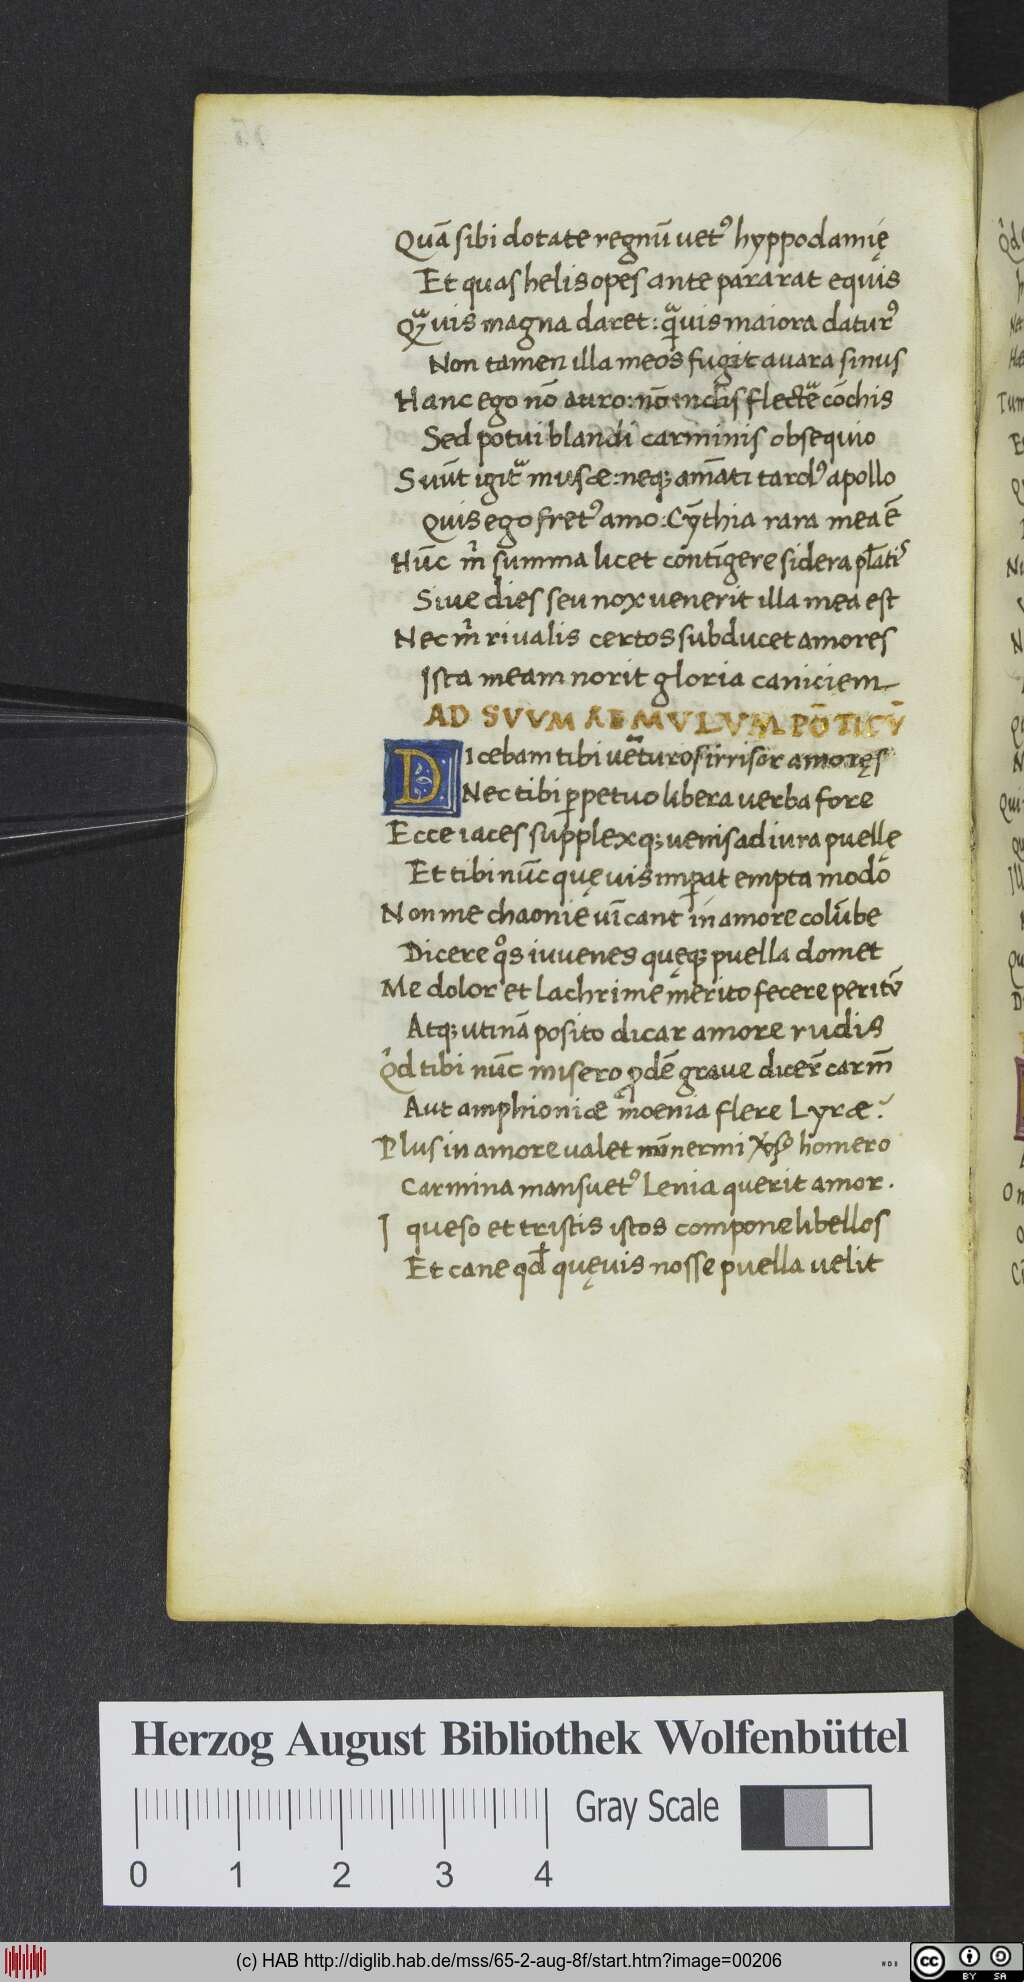 Quā sibi dotate regnū uetꝰ hyppodamię
Et quas helis opes ante pararat equis
Qͣuis magna daret: qͣuis maiora daturꝰ
Non tamen illa meos fugit auara sinus
Hanc ego nō auro: nō indis flectē cōchis
Sed potui blandi carminis obsequio
Suūt igitᷓ musæ: neqꝫ amāti tardꝰ apollo
Quis ego fretꝰ amo: Cȳthia rara mea ē
Nūc m̊ summa licet contīgere sidera plātis
Siue dies seu nox uenerit illa mea est
Nec m̊ riualis certos subducet amores
Ista meam norit gloria caniciem
AD SVVM AEMVLVM PŌTICV̄
Dicebam tibi uēturos irrisor amoręs
Nec tibi ꝑpetuo libera uerba fore
Ecce iaces supplexqꝫ uenis ad iura puellę
Et tibi nūc quęuis imꝑat empta modo
Non me chaonie uīcant in amore colūbe
Dicere qͦs iuuenes quęqꝫ puella domet
Me dolor et lachrime merito fecere peritū
Atqꝫ utinā posito dicar amore rudis
Qͥd tibi nūc misero ꝓdē graue dicer̄ carm̄
Aut amphioniæ moenia flere Lyræ?
Plus in amore ualet mīnermi homero
Carmina mansuetꝰ Lenia querit amor.
I queso et tristis istos compone libellos
Et cane qd̄ quęuis nosse puella uelit
Herzog August Bibliothek Wolfenbüttel
0 1 2 3 4 Gray Scale
(c) HAB http://diglib.hab.de/mss/65-2-aug-8f/start.htm?image=00206
cc BY SA